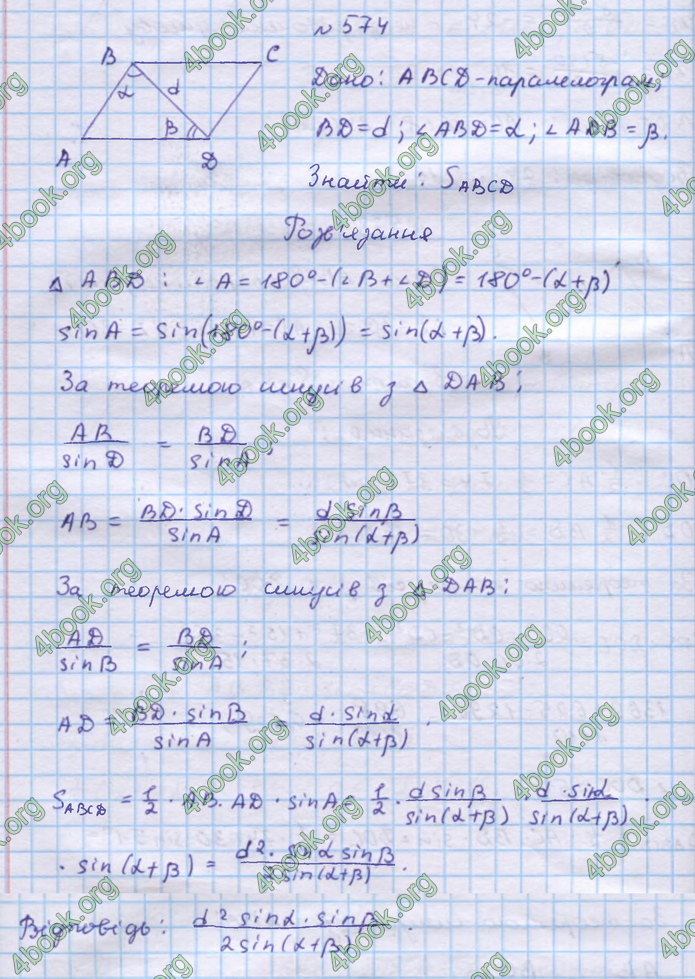 № 574
B C
α d
β
A D
Дано: ABCD-паралелограм;
BD=d; ∠ABD=α; ∠ADB=β.
Знайти: S_ABCD
Розв'язання
△ ABD: ∠A=180°-(∠B+∠D)=180°-(α+β)
sinA = sin(180°-(α+β)) = sin(α+β).
За теоремою синусів з △ DAB:
AB/sinD = BD/sinA;
AB = BD·sinD/sinA = d·sinβ/sin(α+β)
За теоремою синусів з △ DAB:
AD/sinB = BD/sinA;
AD = BD·sinB/sinA = d·sinα/sin(α+β).
S_ABCD = 1/2·AB·AD·sinA = 1/2·d sinβ/sin(α+β)·d·sinα/sin(α+β)·
·sin(α+β) = d²·sinα sinβ/2sin(α+β).
Відповідь: d² sinα·sinβ/2sin(α+β).
4book.org